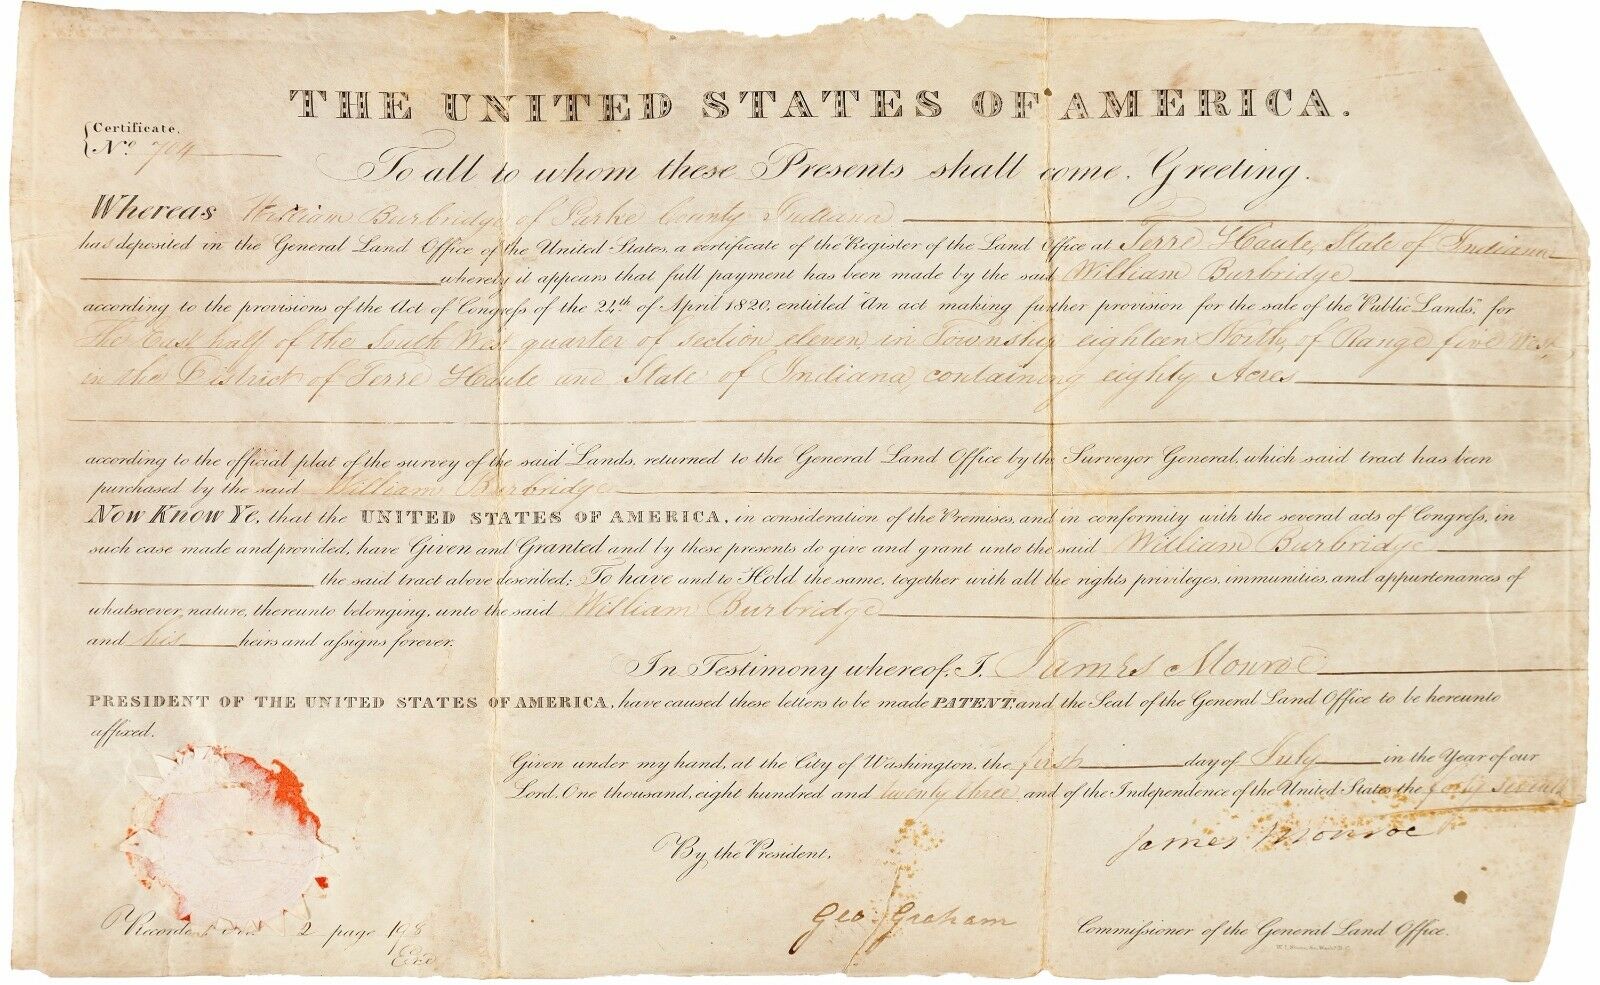 THE UNITED STATES OF AMERICA.
Certificate,
No. 704
To all to whom these Presents shall come, Greeting.
Whereas William Burbridge of Parke County Indiana
has deposited in the General Land Office of the United States, a certificate of the Register of the Land Office at Terre Haute, State of Indiana
whereby it appears that full payment has been made by the said William Burbridge
according to the provisions of the Act of Congress of the 24th of April 1820, entitled "An act making further provision for the sale of the Public Lands," for
The East half of the South West quarter of section eleven, in Township eighteen North, of Range five West,
in the District of Terre Haute and State of Indiana, containing eighty Acres
according to the official plat of the survey of the said Lands, returned to the General Land Office by the Surveyor General, which said tract has been
purchased by the said William Burbridge
Now Know Ye, that the UNITED STATES OF AMERICA, in consideration of the Premises, and in conformity with the several acts of Congress, in
such case made and provided, have Given and Granted and by these presents do give and grant unto the said William Burbridge
the said tract above described; To have and to Hold the same, together with all the rights privileges, immunities, and appurtenances of
whatsoever, nature, thereunto belonging, unto the said William Burbridge
and his heirs and assigns forever.
In Testimony whereof, I, James Monroe
PRESIDENT OF THE UNITED STATES OF AMERICA, have caused these letters to be made PATENT, and the Seal of the General Land Office to be hereunto
affixed.
Given under my hand, at the City of Washington, the first day of July in the Year of our
Lord, One thousand, eight hundred and twenty three, and of the Independence of the United States the forty seventh
James Monroe
By the President,
Geo. Graham
Commissioner of the General Land Office.
Recorded 2 page 198